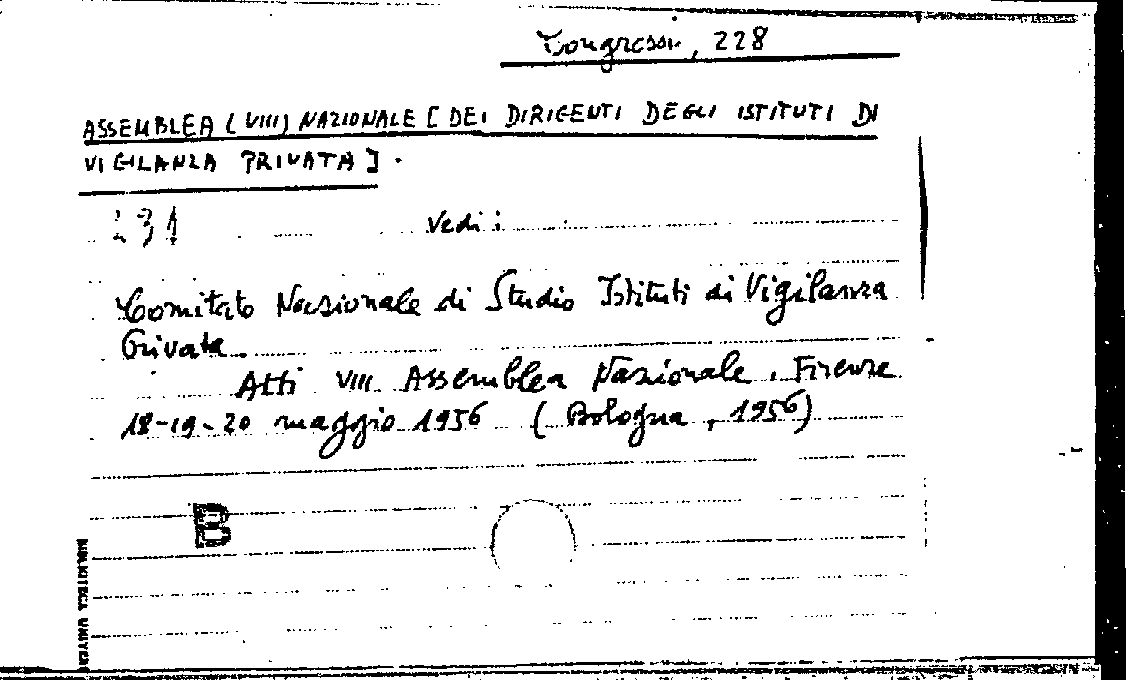 Congressi, 228
ASSEMBLEA (VIII) NAZIONALE [DEI DIRIGENTI DEGLI ISTITUTI DI
VIGILANZA PRIVATA].
231
Vedi:
Comitato Nazionale di Studio Istituti di Vigilanza
Privata.
Atti VIII Assemblea Nazionale, Firenze
18-19-20 maggio 1956 (Bologna, 1956)
B
BIBLIOTECA